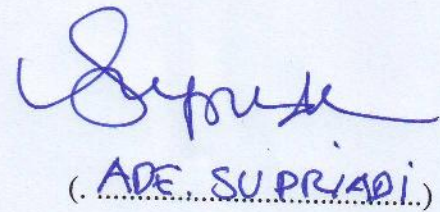 (. ADE. SUPRIADI.)